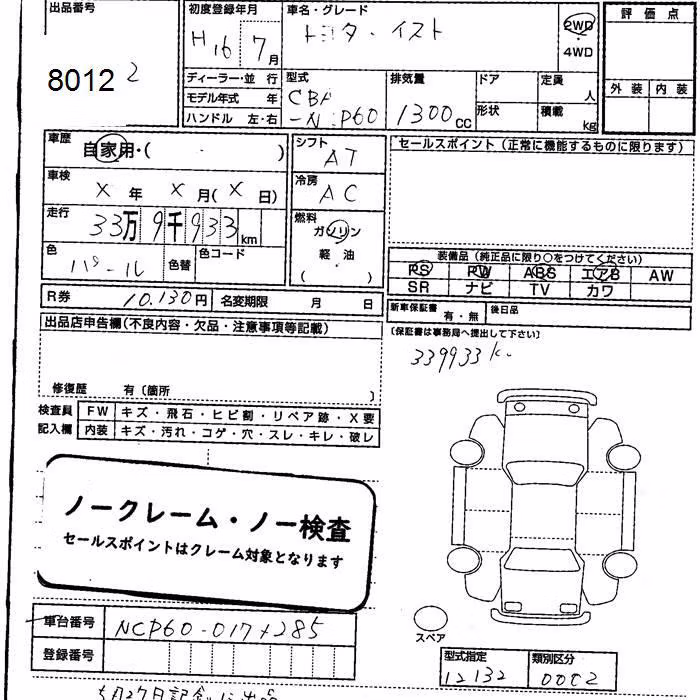 出品番号
8012 2
初度登録年月
H16 7月
ディーラー・並行
モデル年式 年
ハンドル 左・右
車名・グレード
トヨタ・イスト
2WD
・
4WD
型式
CBA
-NCP60
排気量
1300cc
ドア
形状
定員 人
積載 kg
評価点
外装 内装
車歴
自家用・( )
車検
X 年 X 月(X 日)
走行
33万9千933km
色
パール
色替
色コード
シフト
AT
冷房
AC
燃料
ガソリン
軽油
・
( )
セールスポイント(正常に機能するものに限ります)
装備品(純正品に限り○をつけてください)
PS PW ABS エアB AW
SR ナビ TV カワ
R券 10.130円 名変期限 月 日
新車保証書 有・無 後日品
(保証書は事務局へ提出して下さい)
339933k
出品店申告欄(不良内容・欠品・注意事項等記載)
修復歴 有〔箇所 〕
検査員
記入欄
FW キズ・飛石・ヒビ割・リペア跡・X要
内装 キズ・汚れ・コゲ・穴・スレ・キレ・破レ
ノークレーム・ノー検査
セールスポイントはクレーム対象となります
車台番号 NCP60-017
登録番号
スペア
型式指定
12132
類別区分
0002